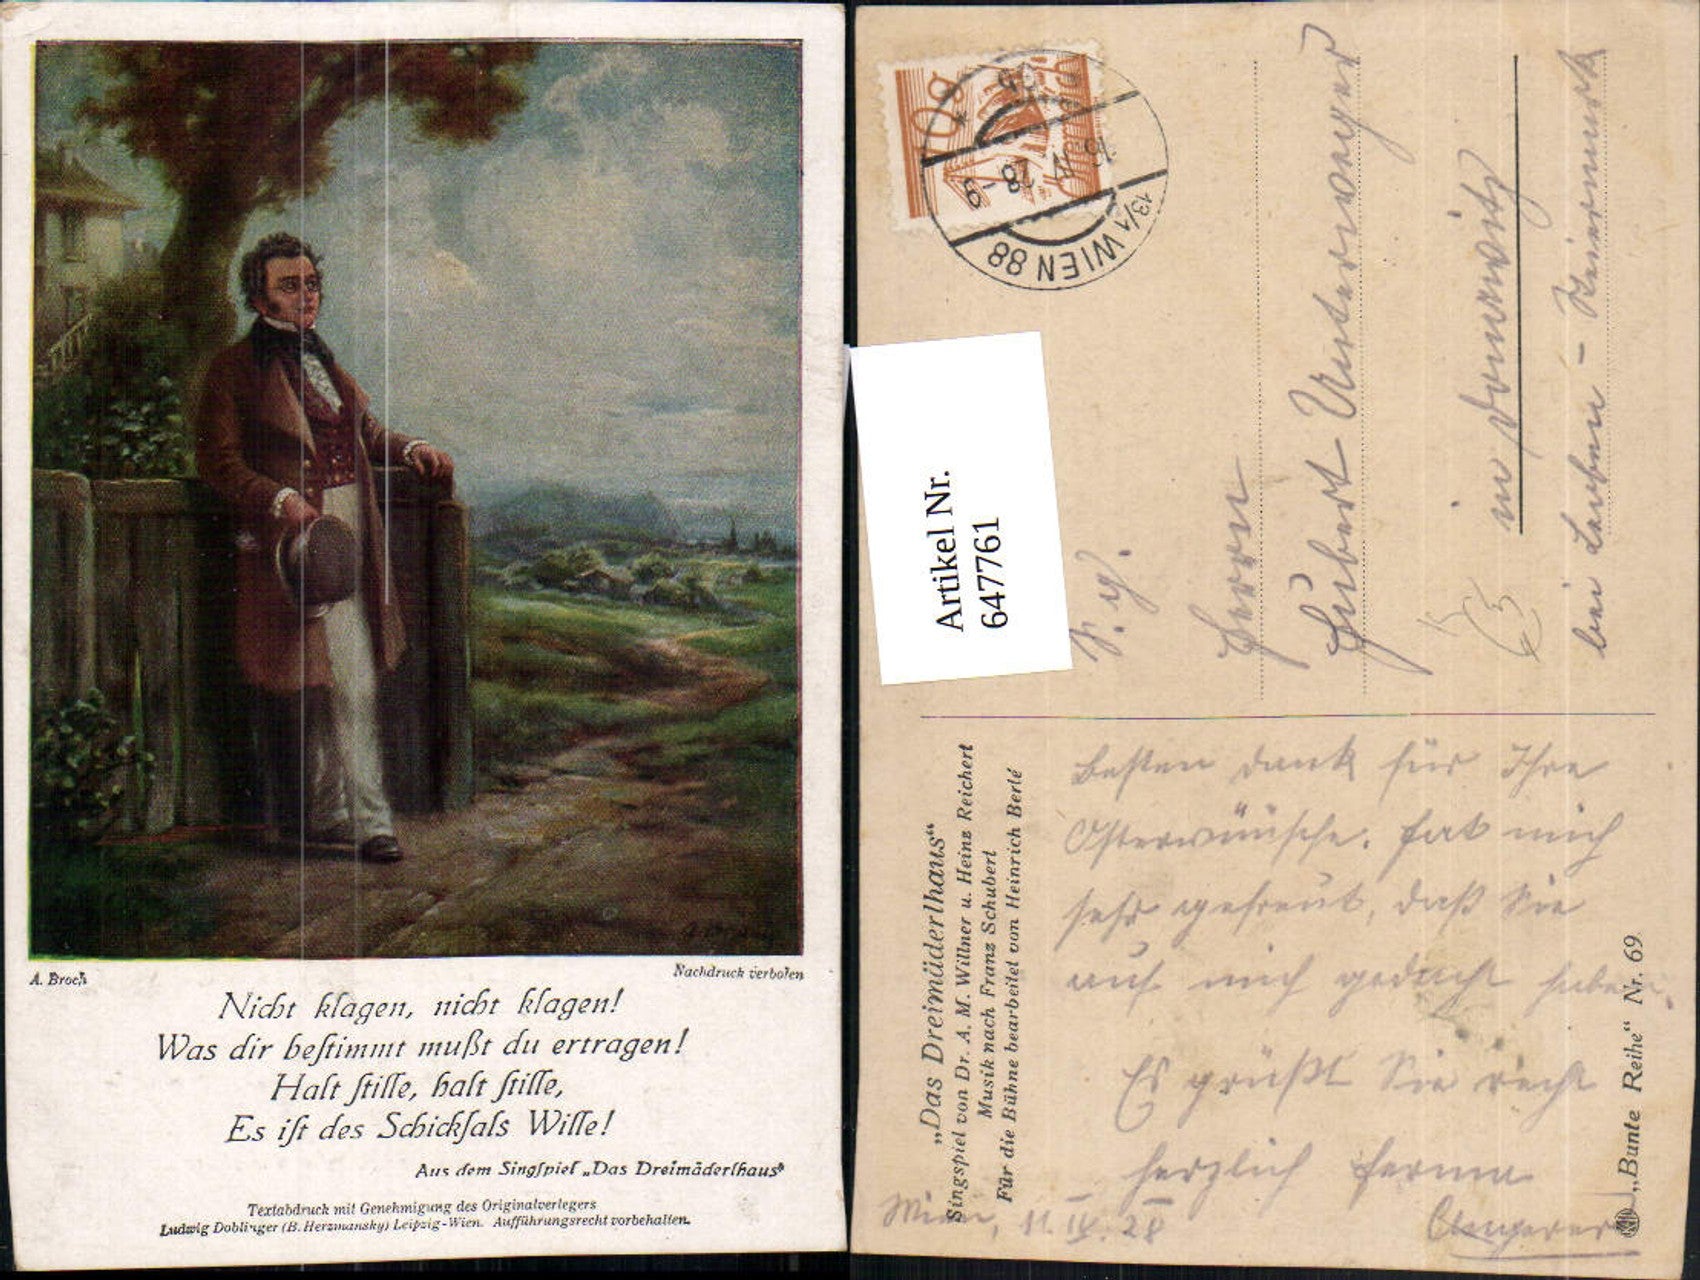 A. Broch
Nachdruck verboten
Nicht klagen, nicht klagen!
Was dir bestimmt mußt du ertragen!
Halt stille, halt stille,
Es ist des Schicksals Wille!
Aus dem Singspiel „Das Dreimäderlhaus“
Textabdruck mit Genehmigung des Originalverlegers
Ludwig Doblinger (B. Herzmansky) Leipzig-Wien. Aufführungsrecht vorbehalten.
10g
13/1 WIEN 88
Artikel Nr.
647761
Herrn
Hubert Unterweger
in Donawitz
bei Leoben - Steiermark
„Das Dreimäderlhaus“
Singspiel von Dr. A. M. Willner u. Heinz Reichert
Musik nach Franz Schubert
Für die Bühne bearbeitet von Heinrich Berté
Besten Dank für Ihre
Osterwünsche. Hat mich
sehr gefreut, daß Sie
auf mich gedacht haben.
Es grüßt Sie recht
herzlich
Wien, 11. IV. 28
„Bunte Reihe“ Nr. 69